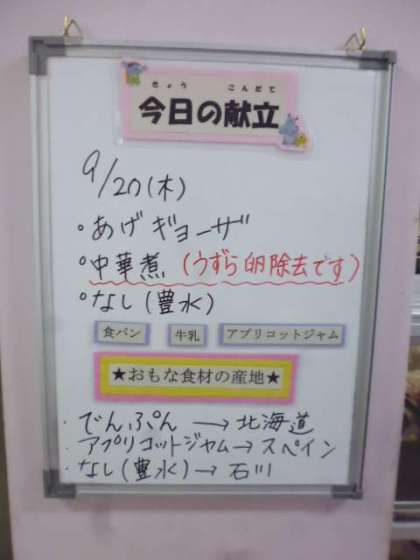 きょう こんだて
今日の献立
9/20(木)
・あげギョーザ
・中華煮(うずら卵除去です)
・なし(豊水)
食パン 牛乳 アプリコットジャム
★おもな食材の産地★
・でんぷん→北海道
・アプリコットジャム→スペイン
・なし(豊水)→石川